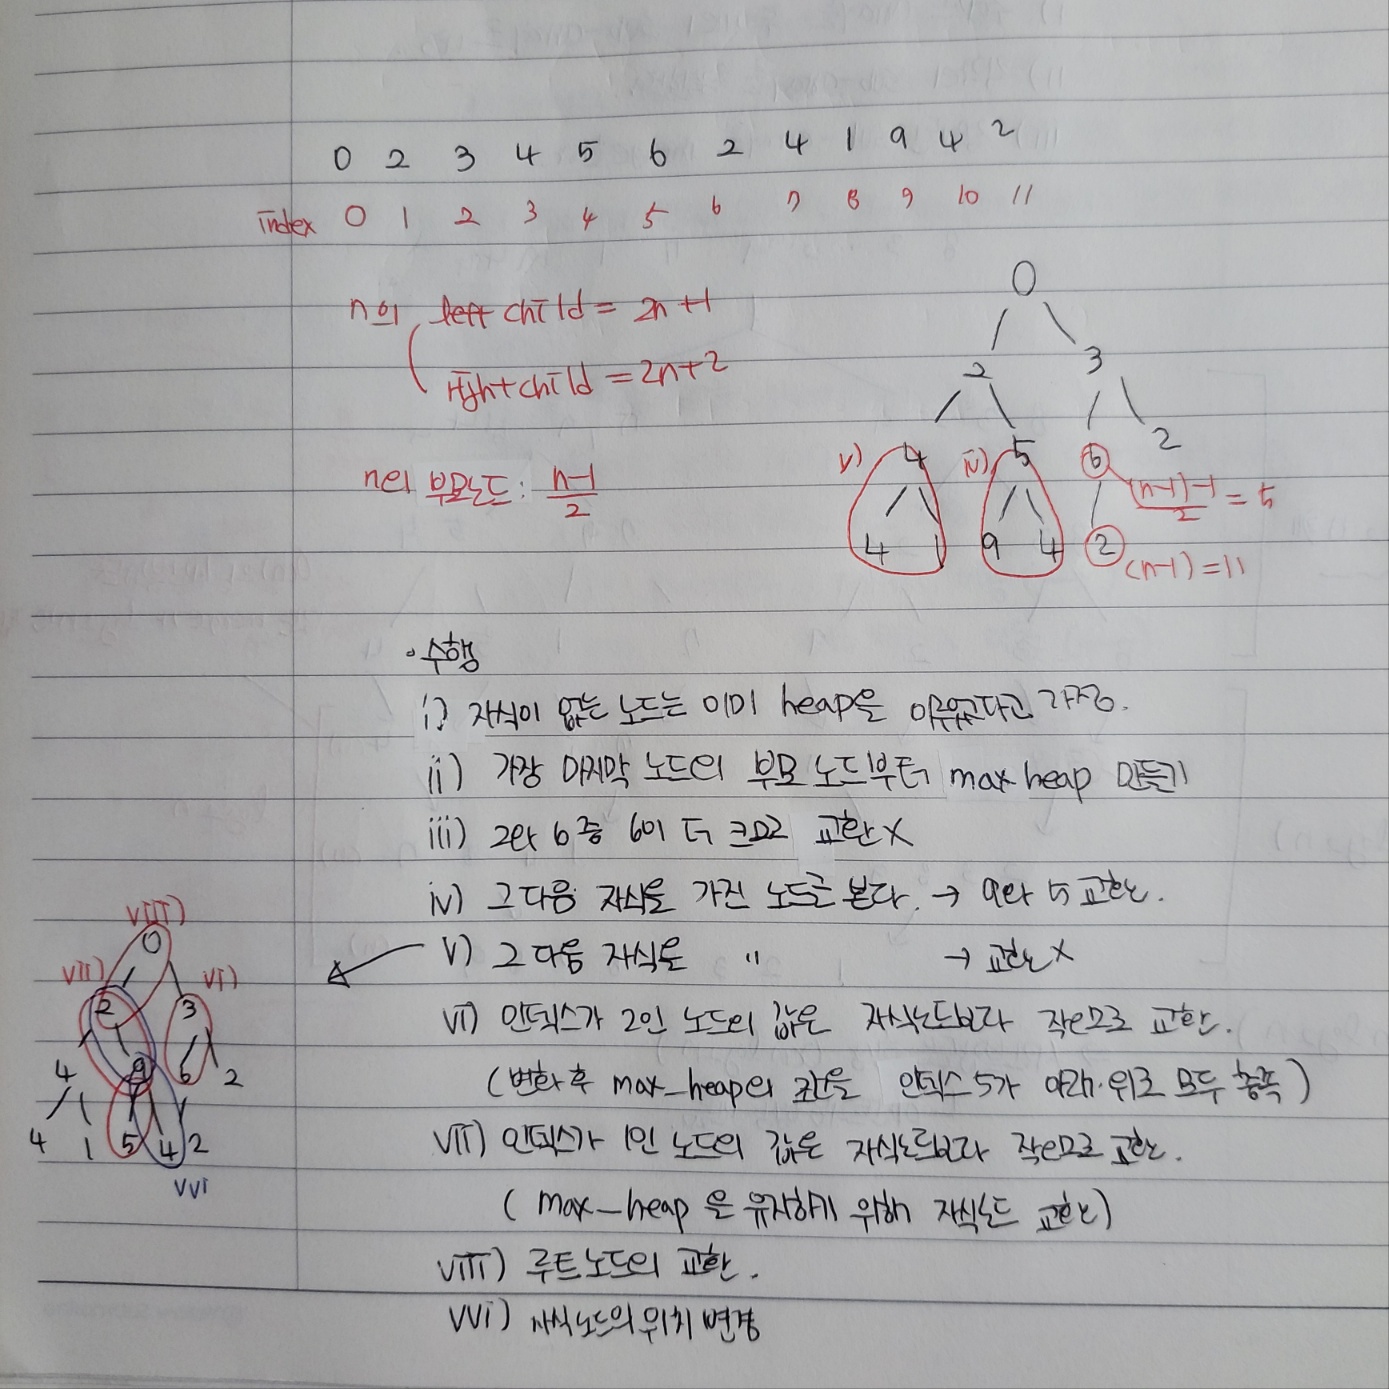 0 2 3 4 5 6 2 4 1 9 4 2
index 0 1 2 3 4 5 6 7 8 9 10 11
n의 left child = 2n+1
right child = 2n+2
n의 부모노드 : n-1/2
0
2 3
v) 4 iv) 5 6 2
(n-1)-1/2 = 5
4 1 9 4 2 (n-1)=11
· 수행
i) 자식이 없는 노드는 이미 heap을 이루었다고 가정.
ii) 가장 마지막 노드의 부모 노드부터 max heap 만들기
iii) 2와 6중 6이 더 크므로 교환X
iv) 그 다음 자식을 가진 노드를 본다. → 9와 5 교환.
v) 그 다음 자식을 〃 → 교환X
vi) 인덱스가 2인 노드의 값은 자식노드보다 작으므로 교환.
(변화 후 max_heap의 조건을 인덱스 5가 아래·위로 모두 충족)
vii) 인덱스가 1인 노드의 값은 자식노드보다 작으므로 교환.
(max_heap 을 유지하기 위해 자식노드 교환)
viii) 루트노드의 교환.
vvi) 자식노드의 위치 변경
viii)
0
vii) vi)
2 3
4 9 6 2
4 1 5 4 2
vvi